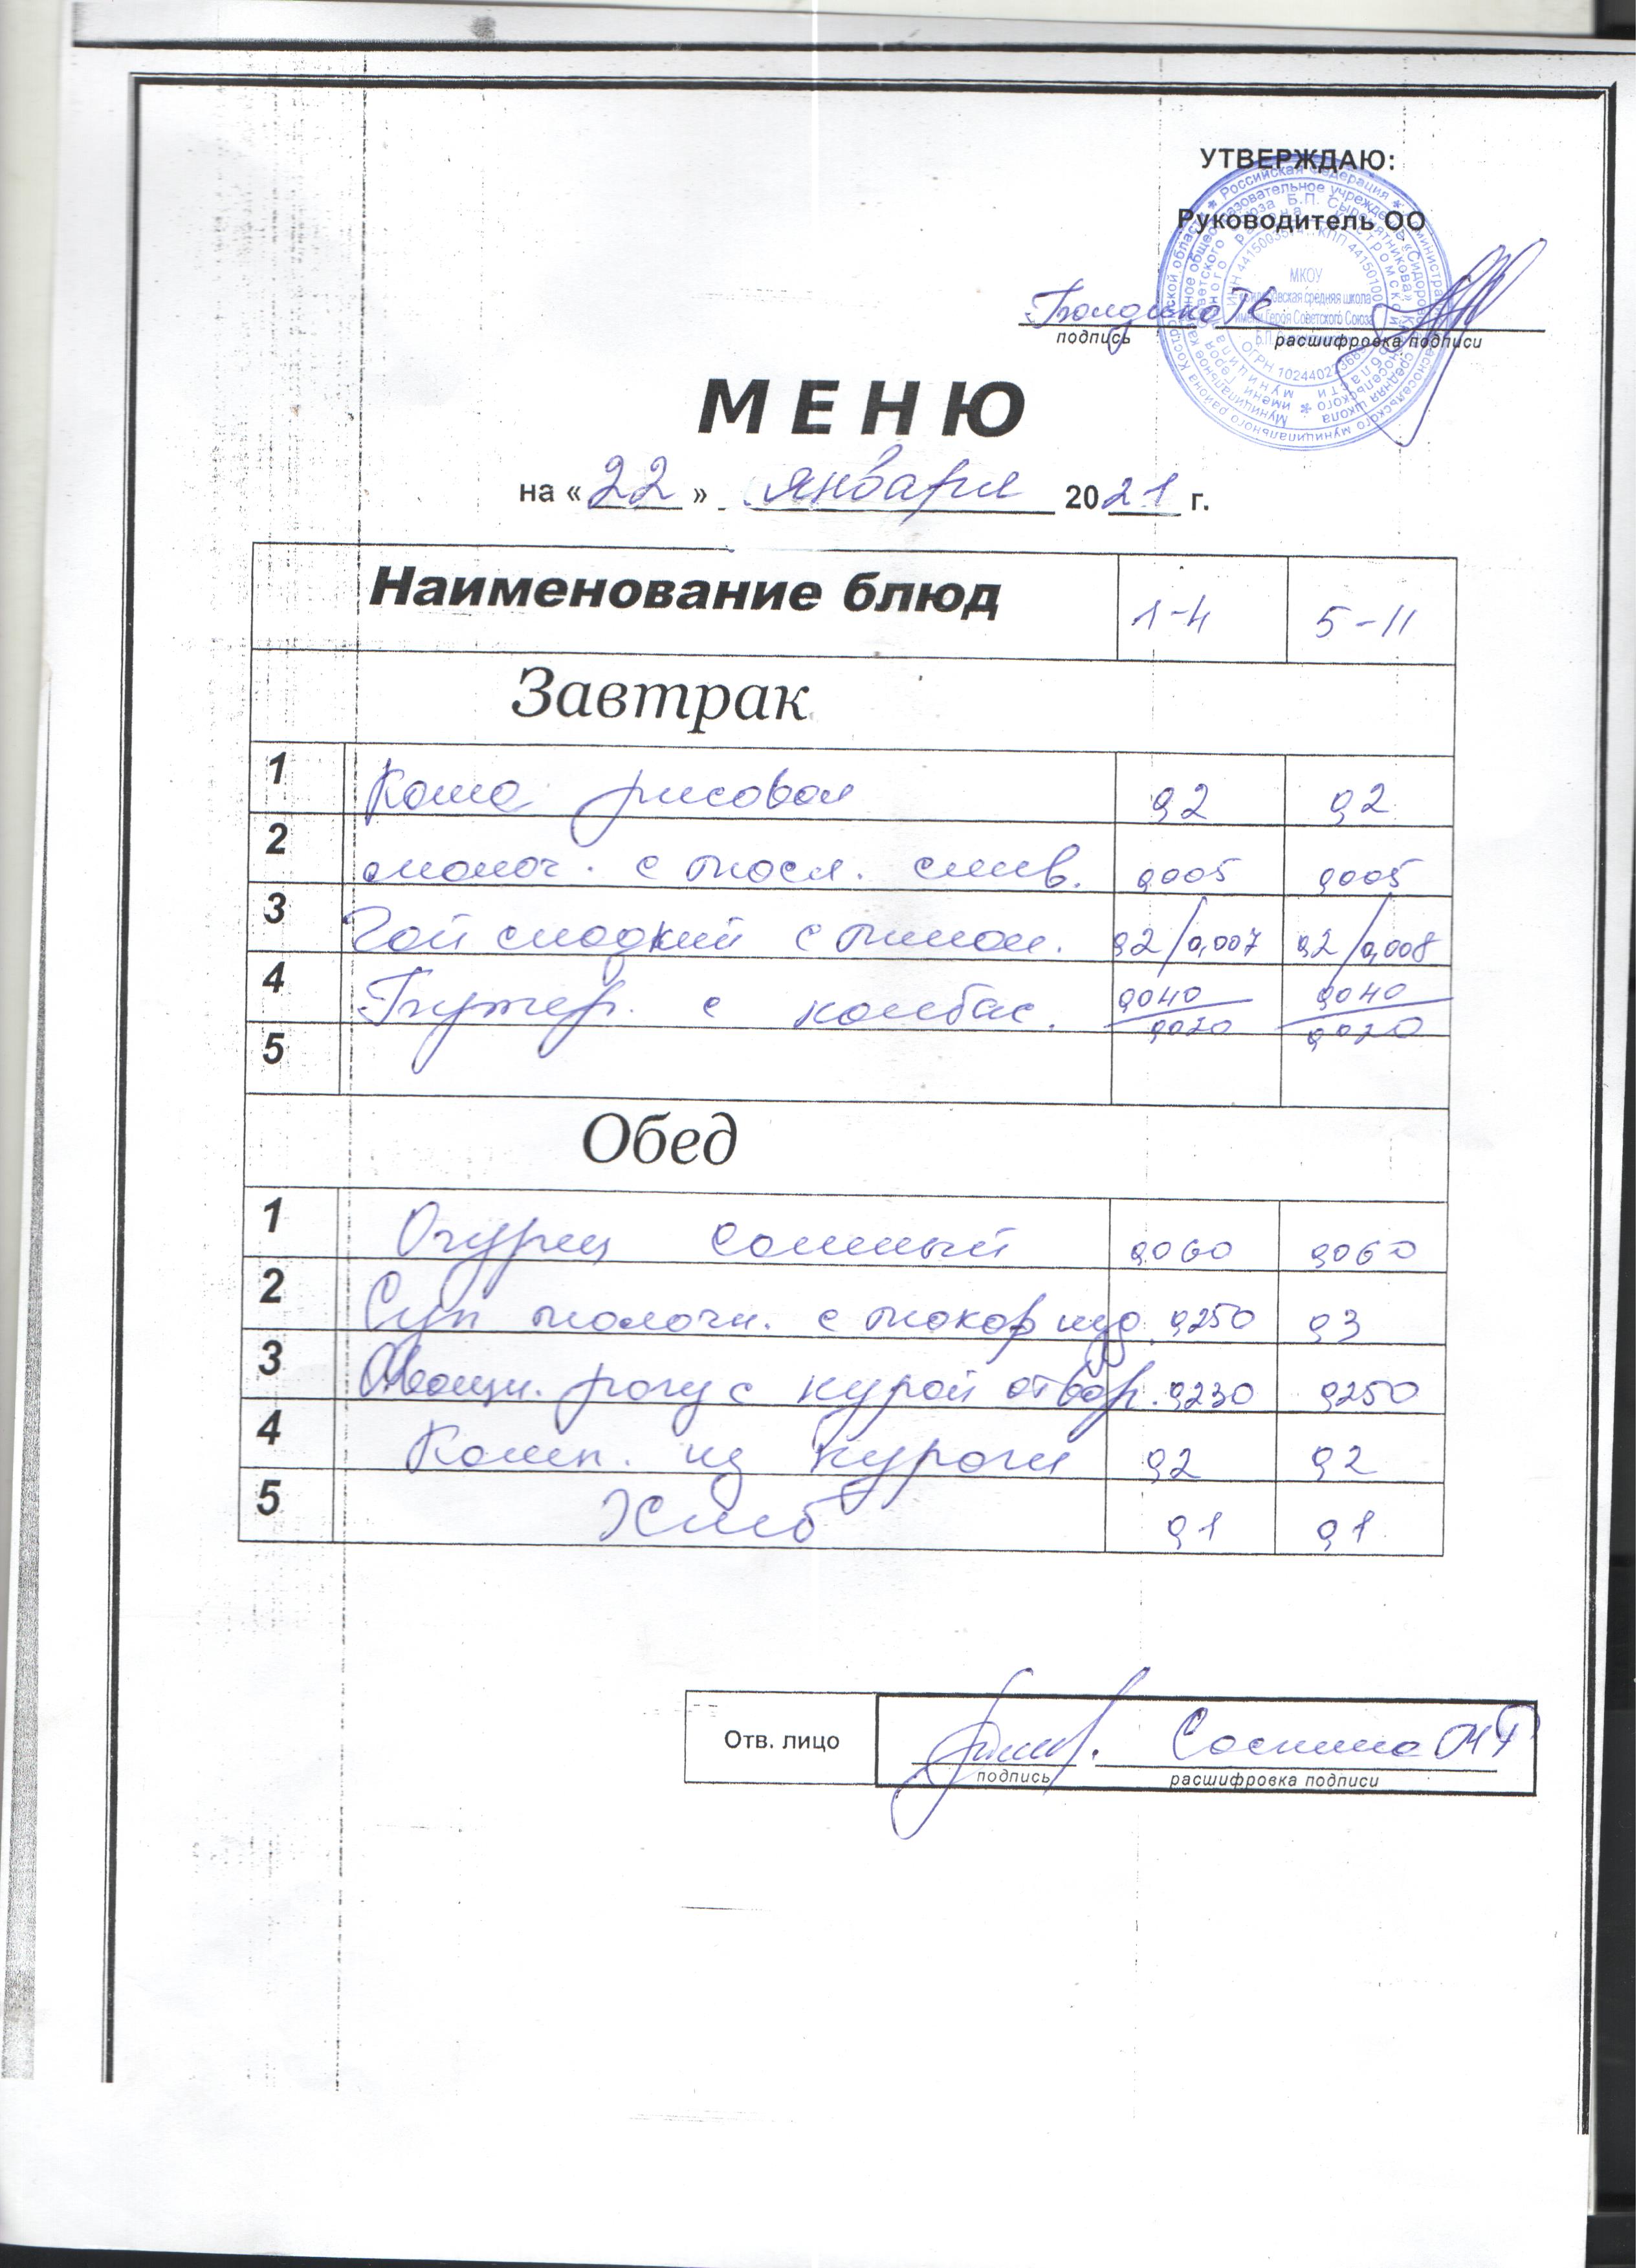 УТВЕРЖДАЮ:
Руководитель ОО
подпись расшифровка подписи
МКОУ
средняя школа
имени Героя Советского Союза
МЕНЮ
на « 22 » января 2021 г.
Наименование блюд 1-4 5-11
Завтрак
1 Каша рисовая 0,2 0,2
2 молоч. с масл. слив. 0,005 0,005
3 Чай сладкий с лимон. 0,2/0,007 0,2/0,008
4 Бутер. с колбас. 0,040/0,020 0,040/0,020
5
Обед
1 Огурец соленый 0,060 0,060
2 Суп молочн. с макар изд. 0,250 0,3
3 Овощн. рагу с курой отвар. 0,230 0,250
4 Комп. из кураги 0,2 0,2
5 Хлеб 0,1 0,1
Отв. лицо Соснина МГ
подпись расшифровка подписи